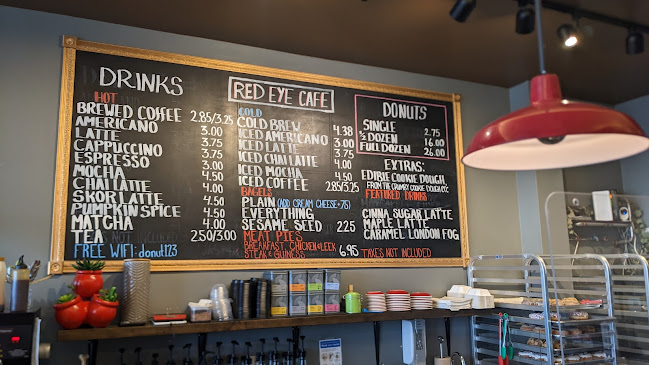 DRINKS
HOT
BREWED COFFEE 2.85/3.25
AMERICANO 3.00
LATTE 3.75
CAPPUCCINO 3.75
ESPRESSO 3.00
MOCHA 4.50
CHAI LATTE 4.00
SKOR LATTE 4.50
PUMPKIN SPICE 4.50
MATCHA 4.00
TEA 2.50/3.00
FREE WIFI: donut123
RED EYE CAFE
COLD
COLD BREW 4.38
ICED AMERICANO 3.00
ICED LATTE 3.75
ICED CHAI LATTE 4.00
ICED MOCHA 4.50
ICED COFFEE 2.85/3.25
BAGELS
PLAIN (ADD CREAM CHEESE +.75)
EVERYTHING
SESAME SEED 2.25
MEAT PIES
BREAKFAST, CHICKEN & LEEK
STEAK & GUINESS 6.95
DONUTS
SINGLE 2.75
½ DOZEN 16.00
FULL DOZEN 26.00
EXTRAS:
EDIBLE COOKIE DOUGH
FROM THE CRUMBY COOKIE DOUGH CO.
FEATURED DRINKS
CINNA SUGAR LATTE
MAPLE LATTE
CARAMEL LONDON FOG
TAXES NOT INCLUDED